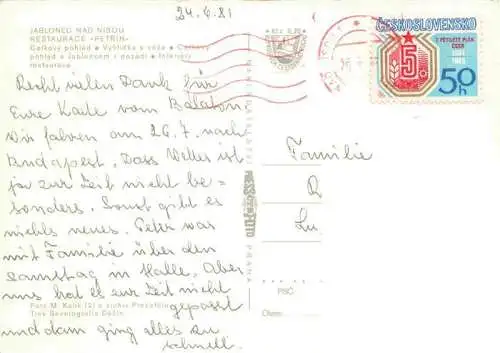 24.6.81
JABLONEC NAD NISOU
RESTAURACE »PETŘÍN«
Celkový pohled • Vyhlídka s věže • Celkový
pohled s Jabloncem v pozadí • Interiéry
restaurace
Kčs 0,70
ČESKOSLOVENSKO
7. PĚTILETÝ PLÁN
ČSSR
1981
1985
5
50h
Recht vielen Dank für
Eure Karte vom Balaton
Wir fahren am 26.7. nach
Budapest. Dass Wetter ist
ja zur Zeit nicht be-
sonders. Sonst gibt es
nichts neues. Peter war
mit Familie über den
Samstag in Halle. Aber
uns hat es zur Zeit nicht
gepasst
und dann ging alles zu
schnell.
Familie
R
Lu
PRESSFOTO
PRAHA
PSČ
Okres:
Foto M. Kalík (2) a archív Pressfoto
Tisk Severografie Děčín